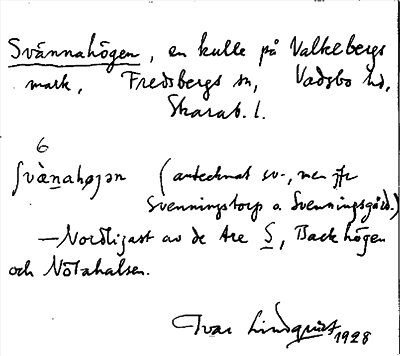 Svännahögen, en kulle på Valkebergs
mark, Fredsbergs sn, Vadsbo hd,
Skarab. l.
6
ʃvànahøjən (antecknat sv-, men jfr
Svenningstorp o. Svenningsgård.)
— Nordligast av de tre S, Backhögen
och Nötahalsen.
Ivar Lindquist 1928